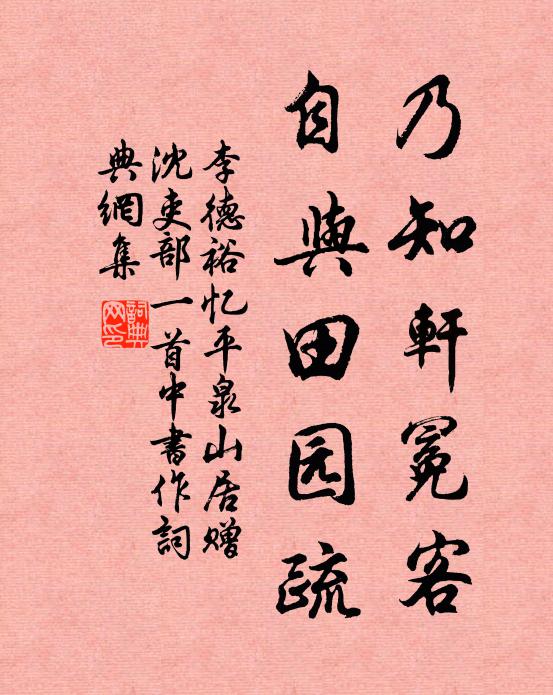 乃知軒冕客
自與田园疏
李德裕忆平泉山居赠
沈吏部一首中書作詞
典網集
詞典网印